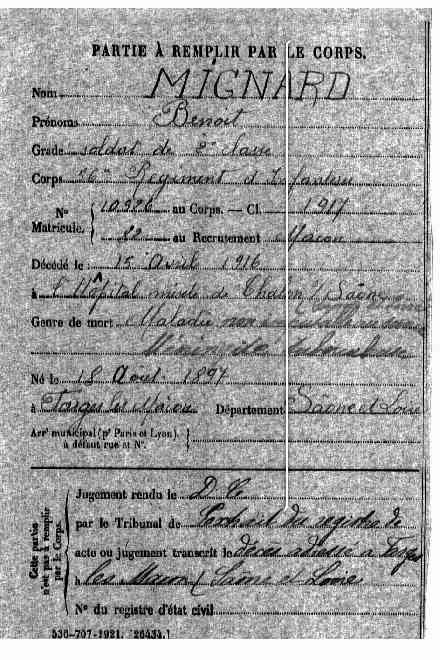 PARTIE À REMPLIR PAR LE CORPS.
Nom MIGNARD
Prénoms Benoit
Grade soldat de 2e classe
Corps 26me Régiment d'Infanterie
No Matricule. 10.926 au Corps. — Cl. 1917
22 au Recrutement Macon
Décédé le 15 Avril 1916
à l'Hôpital mixte de Chalon s/ Saône
Genre de mort Maladie non
Méningite tuberculeuse
Né le 18 Aout 1897
à Farges les Macon Département Saone et Loire
Arrt municipal (pr Paris et Lyon), à défaut rue et No.
Cette partie n'est pas à remplir par le Corps.
Jugement rendu le D. C.
par le Tribunal de extrait du registre de
acte ou jugement transcrit le décès adressé à Farges
à les Macon (Saône et Loire
No du registre d'état civil
536-707-1921. [26434.]